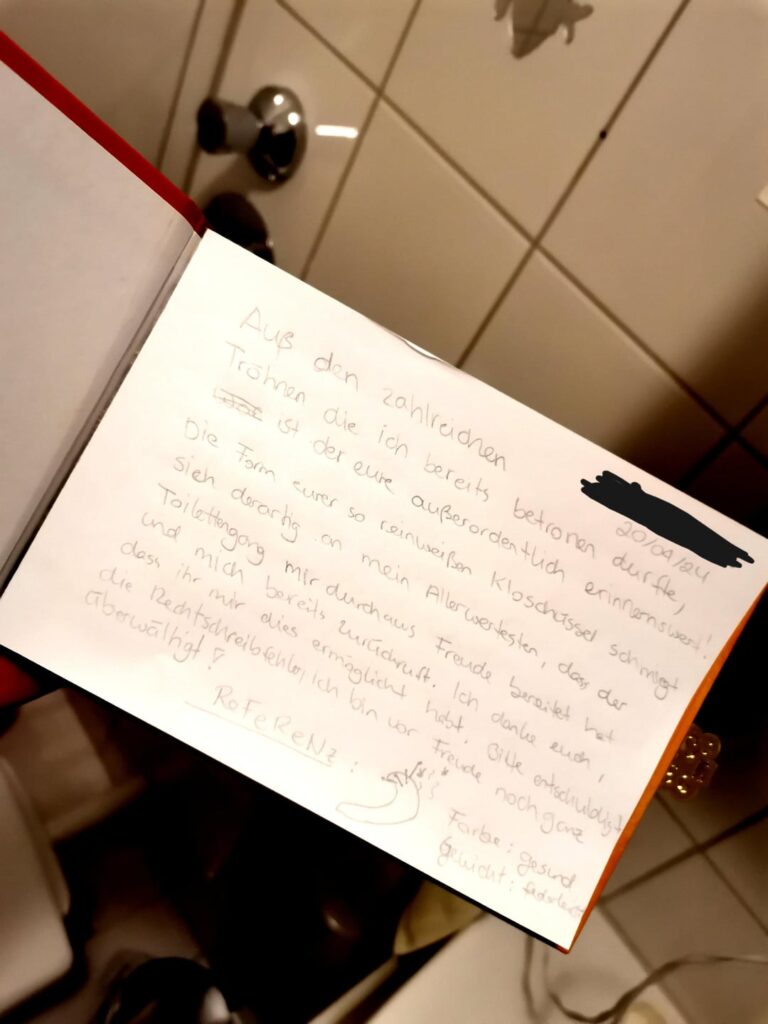 20/04/24
Auß den zahlreichen
Tröhnen die ich bereits betronen durfte,
ist der eure außerordentlich erinnernswert!
Die Form eurer so reinweißen Kloschüssel schmiegt
sich derartig an mein Allerwertesten, dass der
Toilettengang mir durchaus Freude bereitet hat
und mich bereits zurückruft. Ich danke euch,
dass ihr mir dies ermöglicht habt. Bitte entschuldigt
die Rechtschreibfehler, ich bin vor Freude noch ganz
überwältigt!
RoFeReNz:
Farbe: gesund
Gewicht: